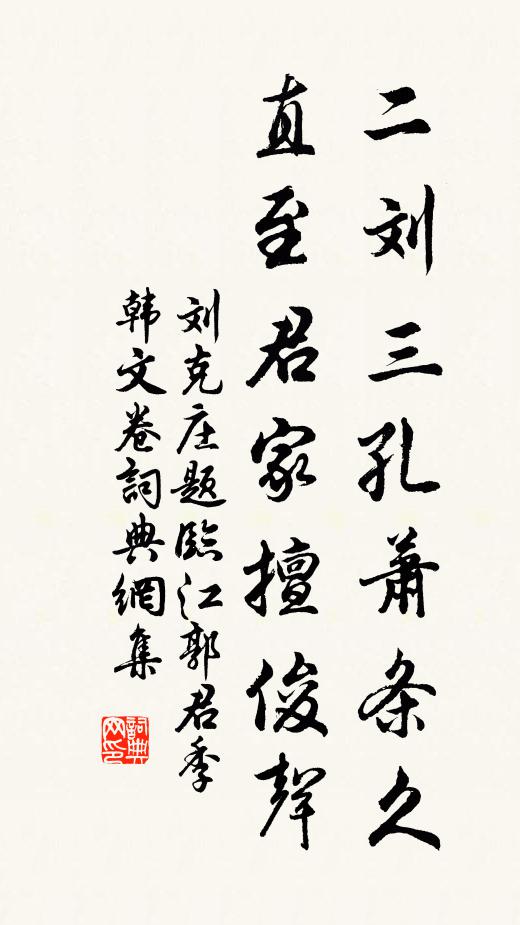 二刘三孔萧条久
直至君家擅俊聲
刘克庄题臨江郭君季
韩文卷詞典網集
詞典
网印